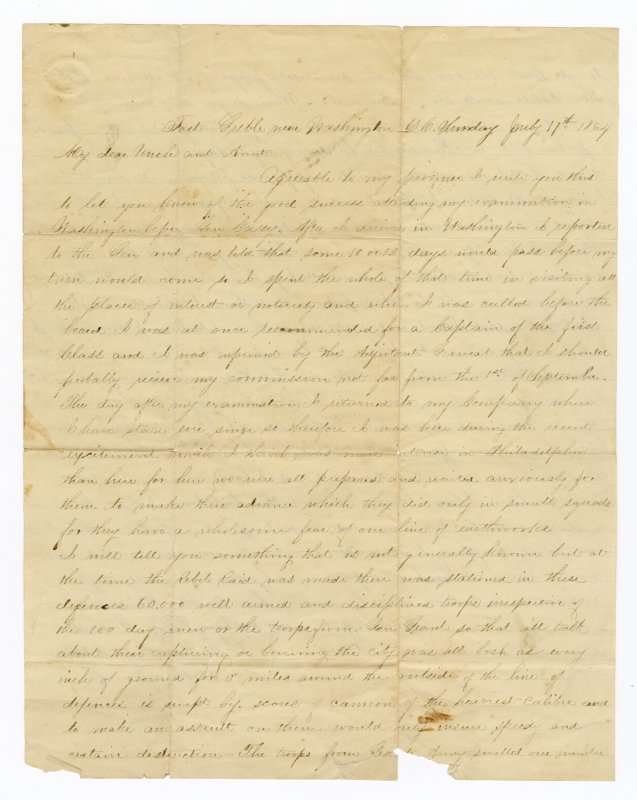 Fort Greble near Washington D.C. Sunday July 17th 1864
My dear Uncle and Aunt
Agreeable to my promise I write you this
to let you know of the good success attending my examination in
Washington before Gen Casey. After I arrived in Washington I reported
to the Gen and was told that some 10 or 12 days would pass before my
turn would come so I spent the whole of that time in visiting all
the places of interest or notoriety and when I was called before the
board I was at once recommended for a Captain of the first
Class and I was informed by the Adjutant General that I should
probably receive my commission not far from the 1st of September.
The day after my examination I returned to my Company where
I have staid ever since so therefore I was here during the recent
excitement which I think was more in Philadelphia
than here for here we were all prepared and waited anxiously for
them to make their advance which they did only in small squads
for they have a wholesome fear of our line of earthworks
I will tell you something that is not generally known but at
the time the Rebel Raid was made there was stationed in these
defences 60,000 well armed and disciplined troops irrespective of
the 100 day men or the troops from Gen Grant so that all talk
about their capturing or burning the city was all bosh as every
inch of ground for 8 miles around the outside of the line of
defences is swept by scores of cannon of the heaviest calibre and
to make an assault on them would only insure speedy and
certain destruction – The troops from Army swelled our number